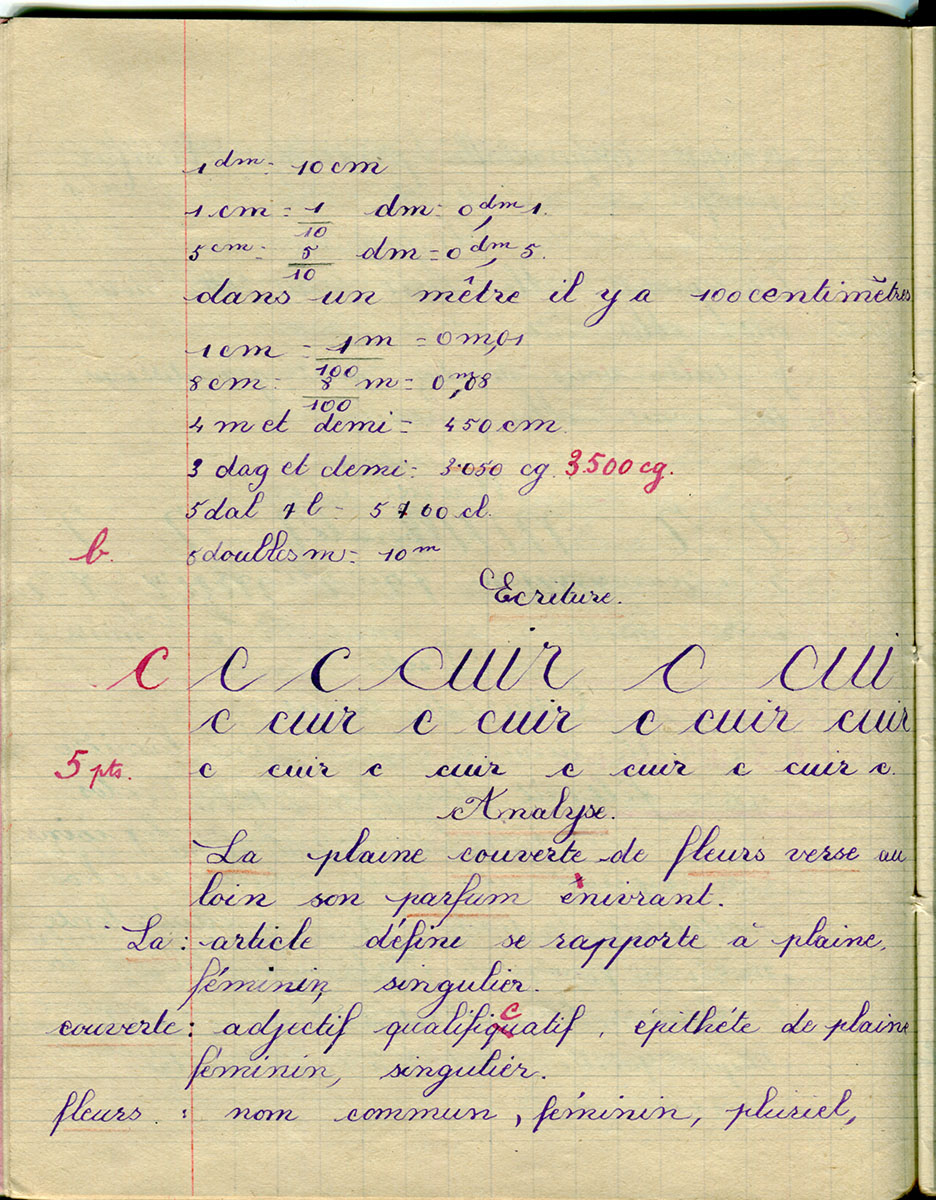 1 dm = 10 cm
1 cm = 1/10 dm = 0 dm,1.
5 cm = 5/10 dm = 0 dm,5.
dans un mêtre il y a 100 centimètres
1 cm = 1/100 m = 0m,01
8 cm = 8/100 m = 0 m,08
4 m et demi = 450 cm.
3 dag et demi = 3050 cg. 3.500 cg.
5 dal 7 l = 5700 cl.
b. 5 doubles m = 10 m
Ecriture.
c c c cuir c cui
c cuir c cuir c cuir cuir
5 pts. c cuir c cuir c cuir c cuir c.
Analyse.
La plaine couverte de fleurs verse au
loin son parfum énivrant.
La : article défini se rapporte à plaine,
féminin, singulier.
couverte : adjectif qualifiquatif, c épithéte de plaine
féminin, singulier.
fleurs : nom commun, féminin, pluriel,